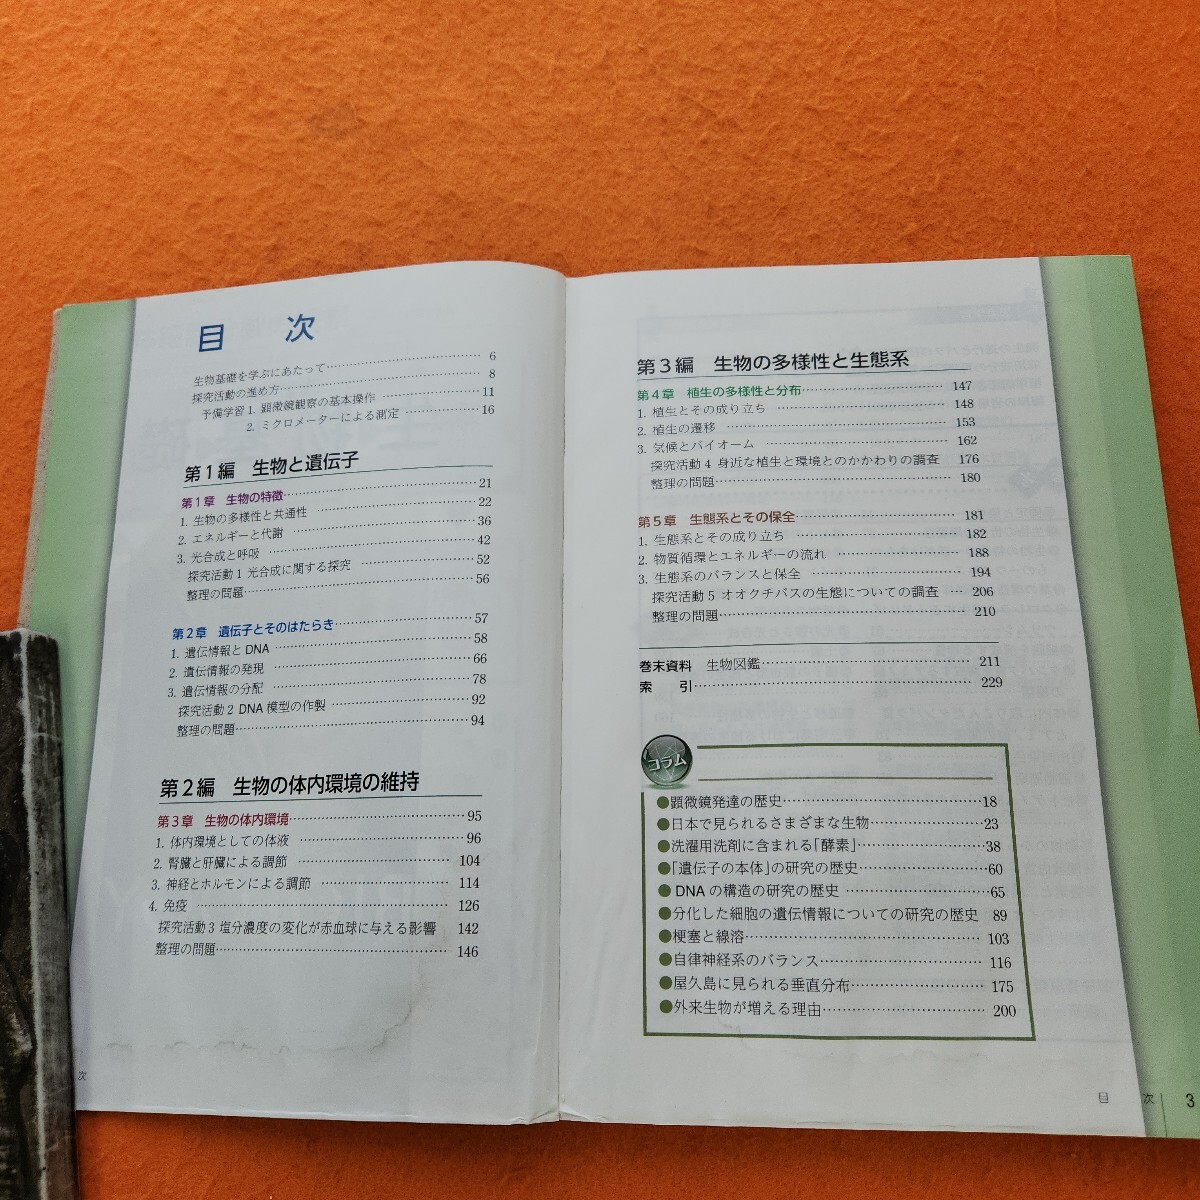 目 次
生物基礎を学ぶにあたって 6
探究活動の進め方 8
予備学習 1. 顕微鏡観察の基本操作 11
2. ミクロメーターによる測定 16
第1編 生物と遺伝子
第1章 生物の特徴 21
1. 生物の多様性と共通性 22
2. エネルギーと代謝 36
3. 光合成と呼吸 42
探究活動1 光合成に関する探究 52
整理の問題 56
第2章 遺伝子とそのはたらき 57
1. 遺伝情報とDNA 58
2. 遺伝情報の発現 66
3. 遺伝情報の分配 78
探究活動2 DNA模型の作製 92
整理の問題 94
第2編 生物の体内環境の維持
第3章 生物の体内環境 95
1. 体内環境としての体液 96
2. 腎臓と肝臓による調節 104
3. 神経とホルモンによる調節 114
4. 免疫 126
探究活動3 塩分濃度の変化が赤血球に与える影響 142
整理の問題 146
次
第3編 生物の多様性と生態系
第4章 植生の多様性と分布 147
1. 植生とその成り立ち 148
2. 植生の遷移 153
3. 気候とバイオーム 162
探究活動4 身近な植生と環境とのかかわりの調査 176
整理の問題 180
第5章 生態系とその保全 181
1. 生態系とその成り立ち 182
2. 物質循環とエネルギーの流れ 188
3. 生態系のバランスと保全 194
探究活動5 オオクチバスの生態についての調査 206
整理の問題 210
巻末資料 生物図鑑 211
索 引 229
コラム
●顕微鏡発達の歴史 18
●日本で見られるさまざまな生物 23
●洗濯用洗剤に含まれる「酵素」 38
●「遺伝子の本体」の研究の歴史 60
●DNAの構造の研究の歴史 65
●分化した細胞の遺伝情報についての研究の歴史 89
●梗塞と線溶 103
●自律神経系のバランス 116
●屋久島に見られる垂直分布 175
●外来生物が増える理由 200
目 次 3